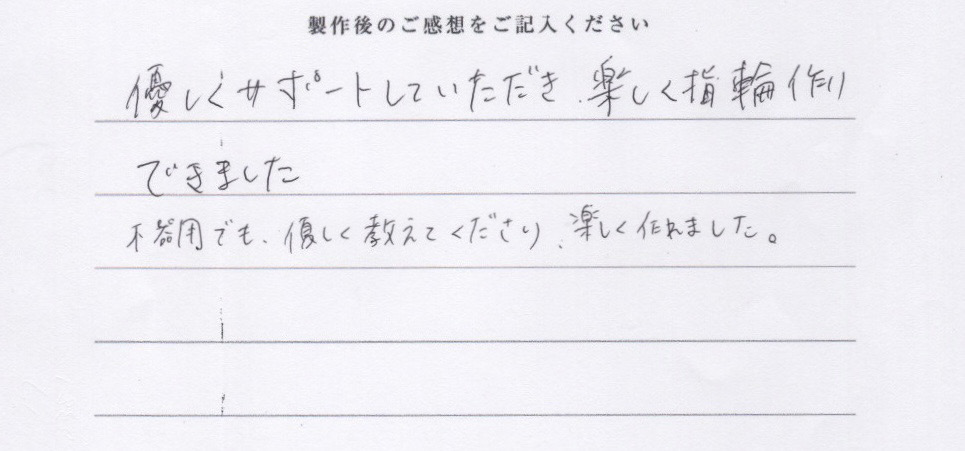 製作後のご感想をご記入ください
優しくサポートしていただき、楽しく指輪作り
できました
不器用でも、優しく教えてくださり、楽しく作れました。